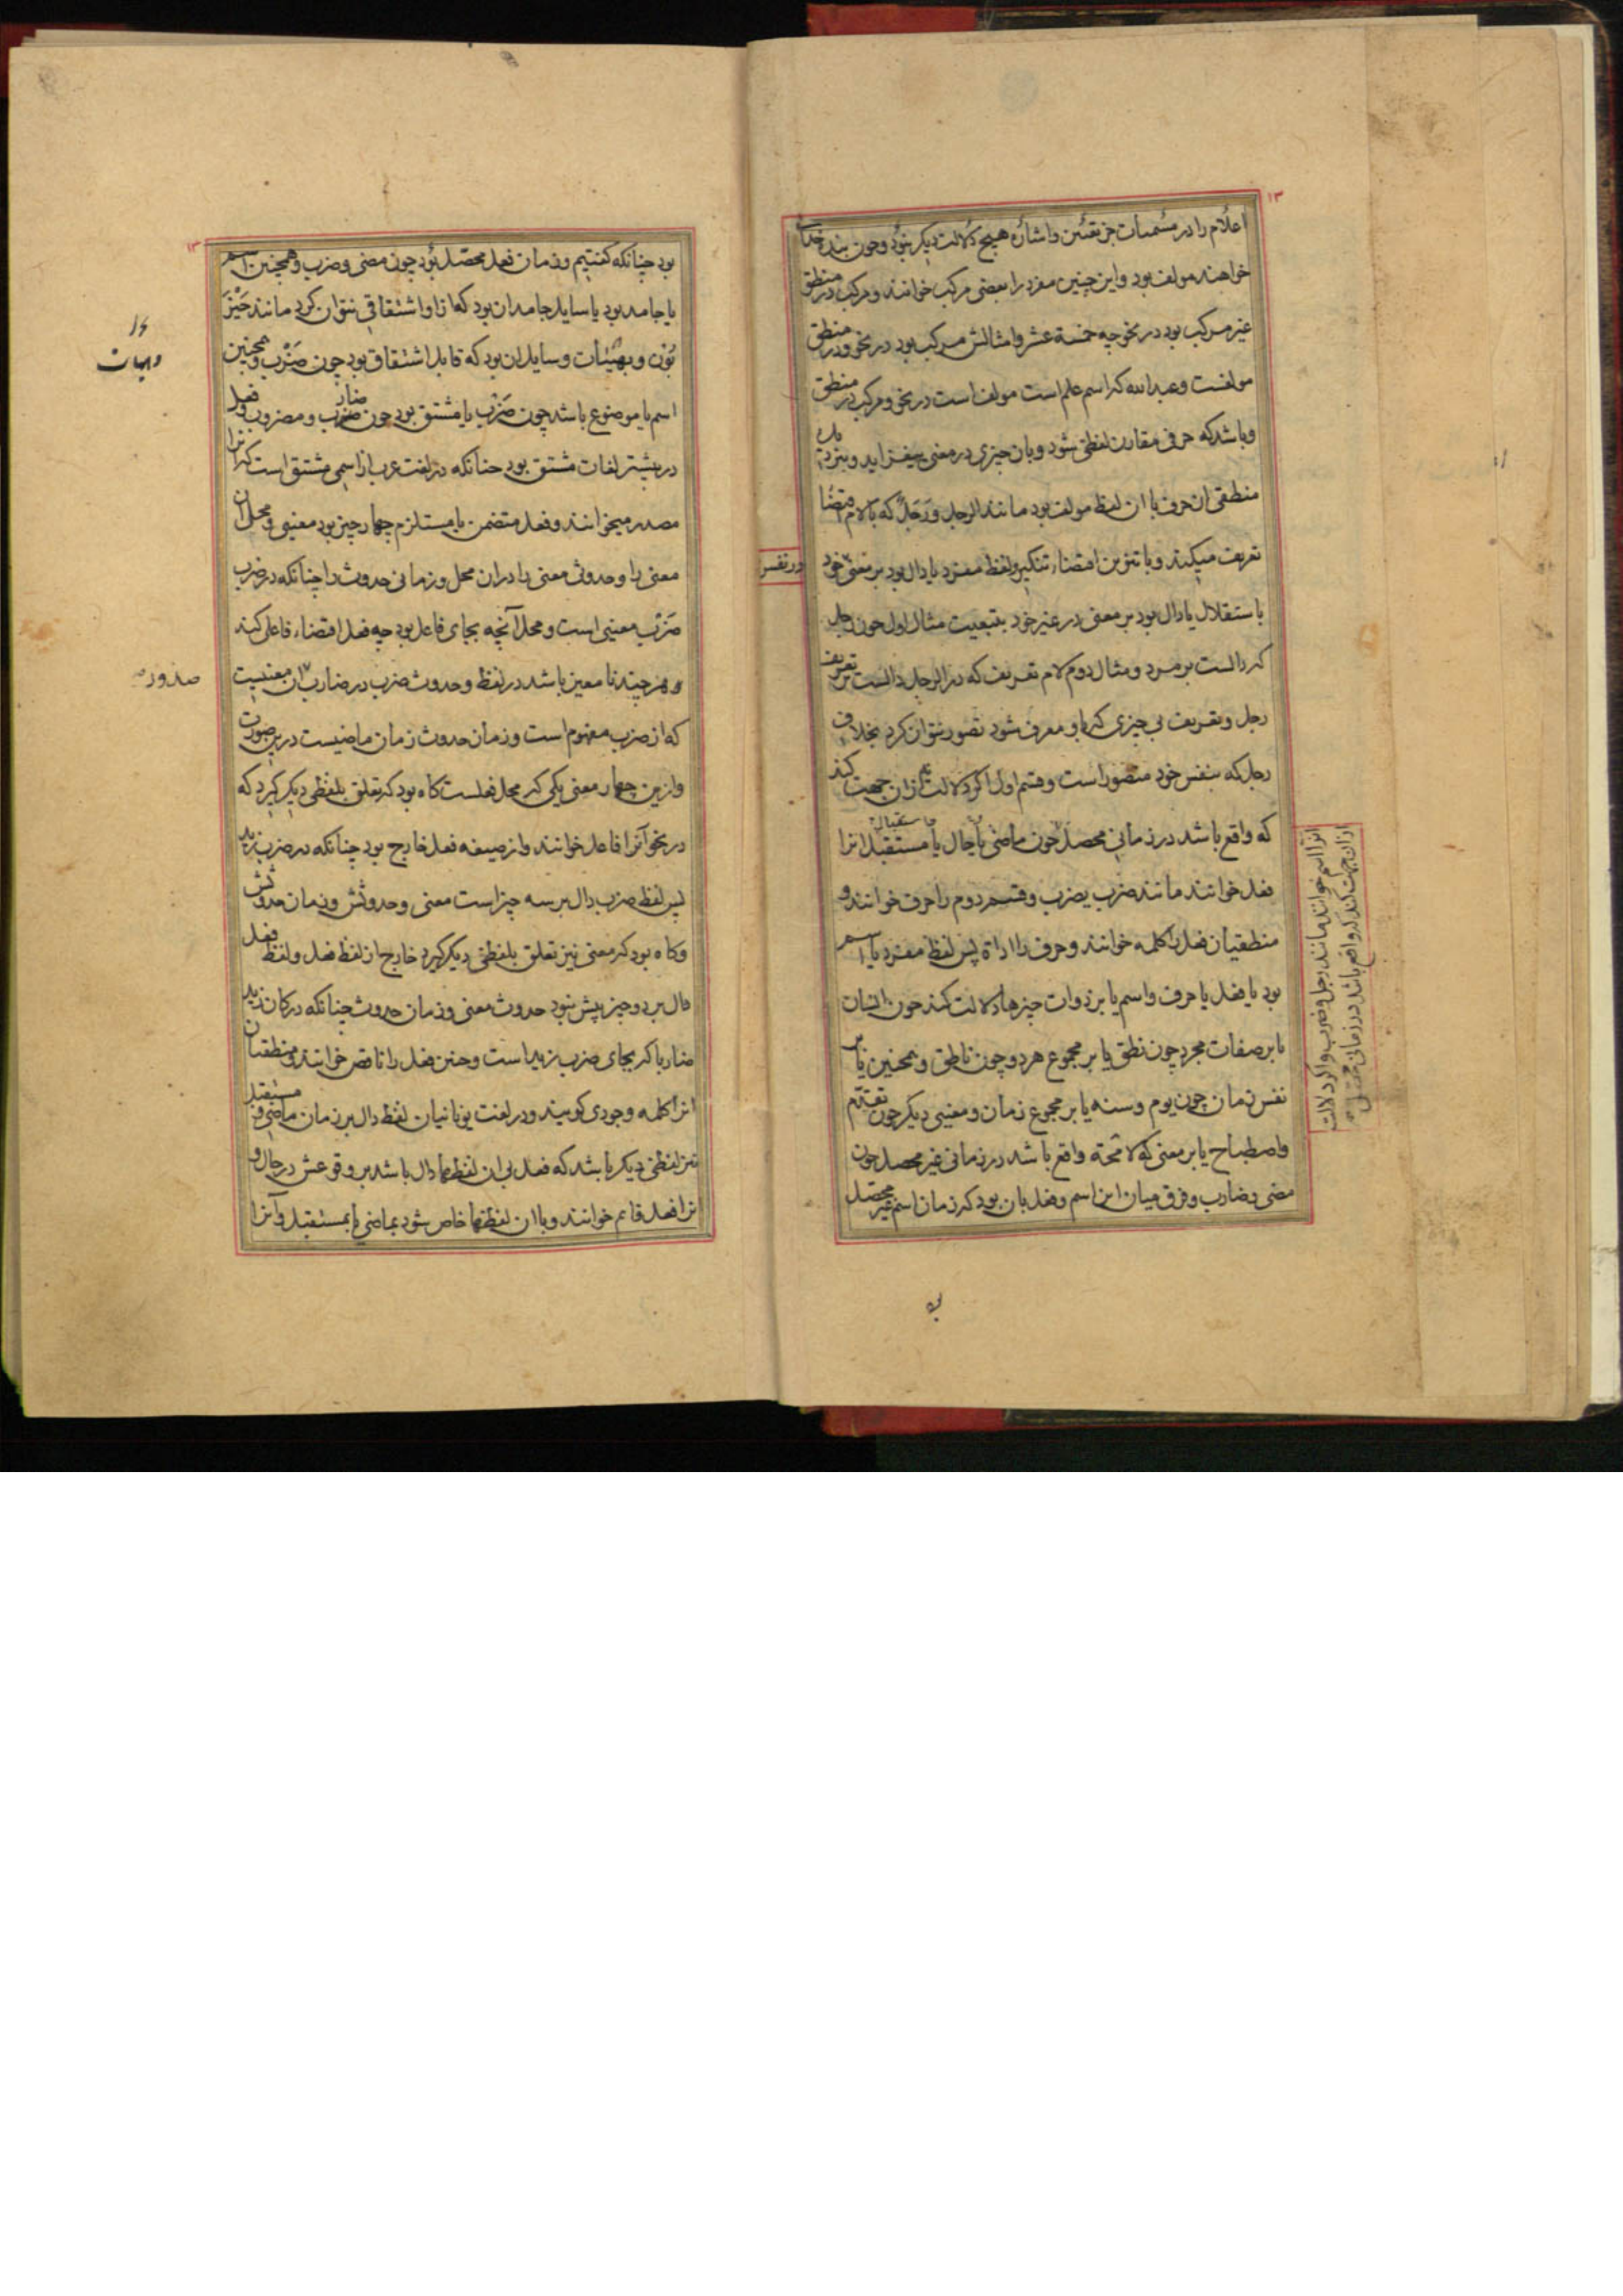 ۱۳
اعلام را در مسمیات جز تعیین و اشاره هیچ دلالت دیکر نبود وچون بنده خدای
خواهند مولف بود واین چنین مفرد را بعضی مرکب خوانند ومرکب در منطق
غیر مرکب بود در نحو چه خمسة عشر وامثالش مرکب بود در نحو ودر منطق
مولفست وعبد الله که اسم علم است مولف است در نحو ومرکب در منطق
وباشد که حرفی مقارن لفظی شود وبان چیزی در معنی بیفزاید وبنزدیک
منطقی ان حرف با ان لفظ مولف بود مانند الرجل ورجلٌ که بالام اقتضا
تعریف میکند وبا تنوین اقتضاء تنکیر ولفظ مفرد یا دال بود بر معنی خود
در نفس
باستقلال یا دال بود بر معنی در غیر خود بتبعیت مثال اول چون رجل
که دالست بر مرد ومثال دوم لام تعریف که در الرجل دالست بر تعریف
رجل وتعریف بی چیزی که باو معرف شود تصور نتوان کرد بخلاف
رجل که بنفس خود متصور است وقسم اول اکر دلالت ازان جهت کند
که واقع باشد در زمانی محصل چون ماضی یا حال یا مستقبل انرا
استقبال
فعل خوانند مانند ضرب یضرب وقسم دوم را حرف خوانند و
منطقیان فعل را کلمه خوانند وحرف را اداة پس لفظ مفرد یا اسم
بود یا فعل یا حرف واسم یا بر ذوات چیزها دلالت کند چون انسان
یا بر صفات مجرد چون نطق یا بر مجموع هردو چون ناطق وهمچنین یا بر
نفس زمان چون یوم وسنه یا بر مجموع زمان ومعنیی دیکر چون تقدم
واصطباح یا بر معنی که لا محة واقع باشد در زمانی غیر محصل چون
مضی وضارب وفرق میان این اسم وفعل بان بود که زمان اسم غیر محصل
انرا اسم خوانند مانند رجل وضرب واکر دلالت
ازان جهت کند که واقع باشد در زمانی
۱۳
بود چنانکه کفتیم وزمان فعل محصل بود چون مضی وضرب وهمچنین اسم
یا جامد بود یا سایل جامد ان بود که ازاو اشتقاقی نتوان کرد مانند حَیْز
بُوْن وبهیئات وسایل ان بود که قابل اشتقاق بود چون ضَرْب وهمچنین
وهیهات
اسم یا موضوع باشد چون ضَرْب یا مشتق بود چون ضارب ومضروب وفعل
در بیشتر لغات مشتق بود چنانکه در لغت عرب از اسمی مشتق است که انرا
مصدر میخوانند وفعل متضمن یا مستلزم چهار چیز بود معنیی ومحل ان
معنی را وحدوث معنی را دران محل وزمانی حدوث را چنانکه در ضرب
ضَرْب معنیی است ومحل آنچه بجای فاعل بود چه فعل اقتضاء فاعلی کند
وهرچند نا معین باشد در لفظ وحدوث ضرب در ضارب ان معنیست
صدور
که از ضرب مفهوم است وزمان حدوث زمان ماضیست درین صورت
وازین چهار معنی یکی که محل فعلست کاه بود که تعلق بلفظی دیکر کیرد که
در نحو آنرا فاعل خوانند واز صیغه فعل خارج بود چنانکه در ضرب زید
پس لفظ ضرب دال بر سه چیز است معنی وحدوثش وزمان حدوثش
وکاه بود که معنی نیز تعلق بلفظی دیکر کیرد خارج از لفظ فعل ولفظ فعل
دال بر دو چیز بیش نبود حدوث معنی وزمان حدوث چنانکه در کان زید
ضاربا که بجای ضرب زید است وچنین فعل را ناقص خوانند ومنطقیان
انرا کلمه وجودی کویند ودر لغت یونانیان لفظ دال بر زمان ماضی ومستقبل
نیز لفظی دیکر باشد که فعل بی ان لفظها دال باشد بر وقوعش در حال و
انرا فعل قایم خوانند وبا ان لفظها خاص شود بماضی یا بمستقبل وآنرا